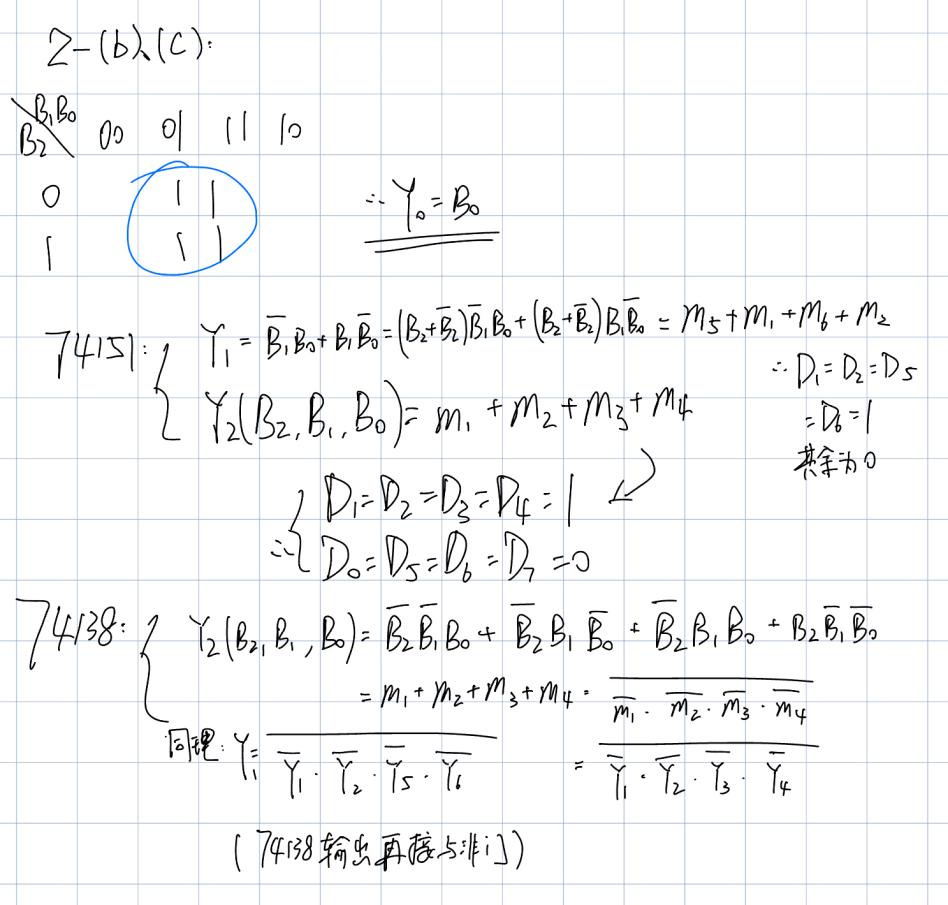 2-(b)、(c):
B₁B₀
B₂ 00 01 11 10
0 1 1
1 1 1
∴ Y₀ = B₀
74151: { Y₁ = B̅₁B₀ + B₁B̅₀ = (B₂+B̅₂)B̅₁B₀ + (B₂+B̅₂)B₁B̅₀ = m₅+m₁+m₆+m₂
∴ D₁=D₂=D₅
=D₆=1
其余为0
Y₂(B₂,B₁,B₀) = m₁+m₂+m₃+m₄
∴ { D₁=D₂=D₃=D₄=1
D₀=D₅=D₆=D₇=0
74138: { Y₂(B₂,B₁,B₀) = B̅₂B̅₁B₀ + B̅₂B₁B̅₀ + B̅₂B₁B₀ + B₂B̅₁B̅₀
= m₁+m₂+m₃+m₄ = \overline{m̅₁·m̅₂·m̅₃·m̅₄}
= \overline{Y̅₁·Y̅₂·Y̅₃·Y̅₄}
同理: Y₁= \overline{Y̅₁·Y̅₂·Y̅₅·Y̅₆}
(74138输出再接与非门)